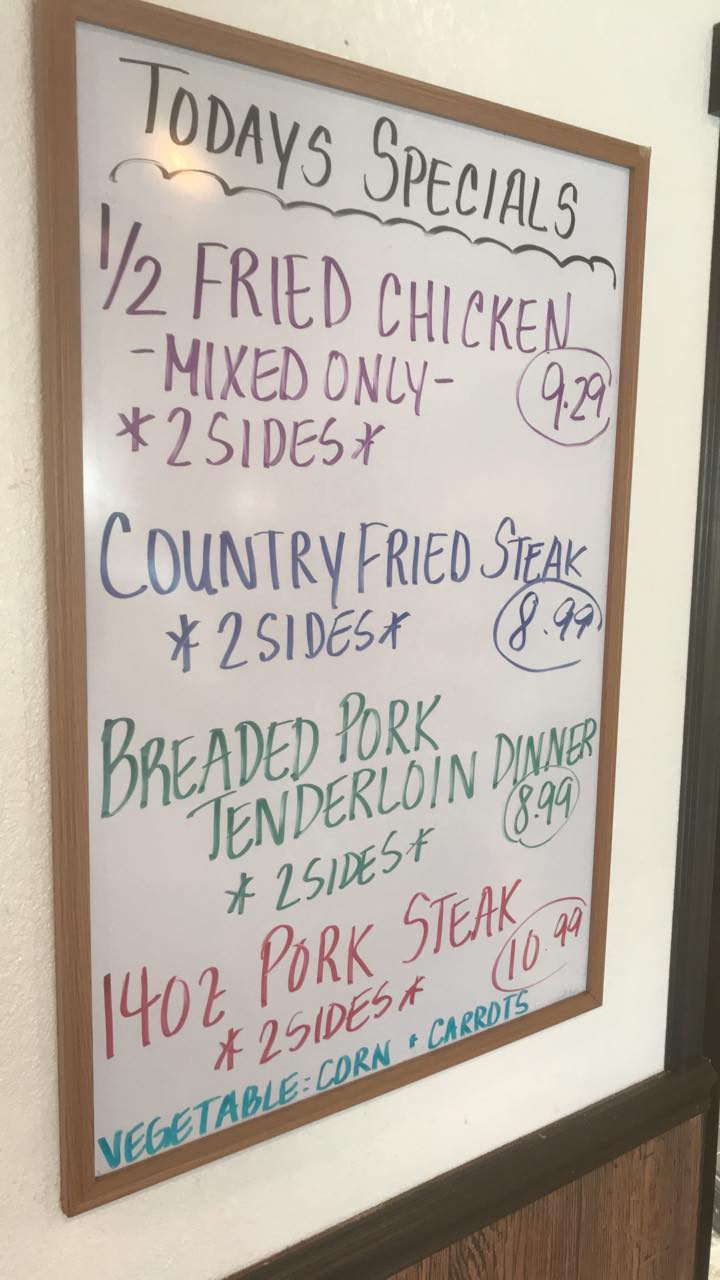 TODAYS SPECIALS
1/2 FRIED CHICKEN
-MIXED ONLY-
9.29
*2 SIDES*
COUNTRY FRIED STEAK
*2 SIDES*
8.99
BREADED PORK
TENDERLOIN DINNER
8.99
*2 SIDES*
14OZ PORK STEAK
10.99
*2 SIDES*
VEGETABLE: CORN & CARROTS